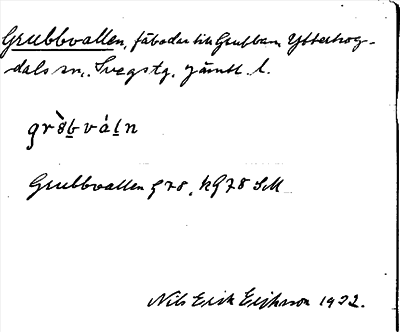 Grubbvallen, fäbodar till Grubban Ytterhog-
dals sn., Svegs tg. Jämtl. l.
Grubbvallen G 78, kG 78 SM
Nils Erik Eriksson 1932.